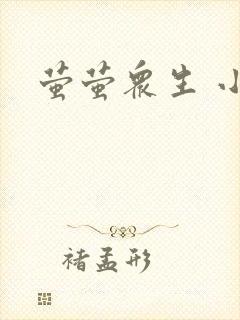 萤萤众生 小
褚孟形